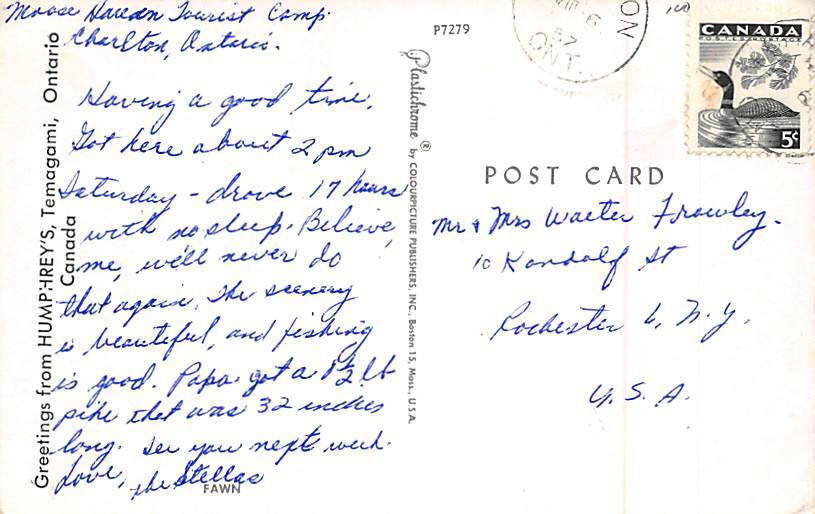 Moose Haven Tourist Camp
Charlton, Ontario.
Having a good time.
Got here about 2 pm
Saturday - drove 17 hours
with no sleep. Believe
me, we'll never do
that again. The scenery
is beautiful, and fishing
is good. Papa got a 8½ lb
pike that was 32 inches
long. See you next week.
Love, the Stellas
FAWN
Greetings from HUMPHREY'S, Temagami, Ontario
Canada
P7279
Plastichrome ® by COLOURPICTURE PUBLISHERS, INC., Boston 15, Mass., U.S.A.
ON
6
57
ONT.
CANADA
POSTES POSTAGE
5¢
POST CARD
Mr & Mrs Walter Frawley.
10 Kondolf St
Rochester 6, N.Y.
U.S.A.